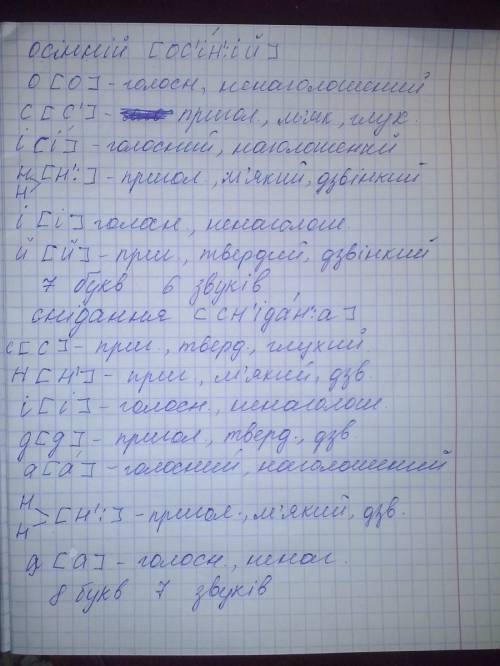 осінній [ос'íн':ій]
о [о] - голосн, ненаголошений
с [с'] - пригол, м'як, глух.
і [í] - голосний, наголошений
н н [н':] - пригол, м'який, дзвінкий
і [і] голосн, ненаголош
й [й] - приг, твердий, дзвінкий
7 букв 6 звуків
снідання [сн'ідáн':а]
с [с] - приг, тверд., глухий
н [н'] - приг, м'який, дзв.
і [і] - голосн, ненаголош.
д [д] - пригол, тверд., дзв.
а [á] - голосний, наголошений
н н [н':] - пригол., м'який, дзв.
я [а] - голосн., ненаг.
8 букв 7 звуків